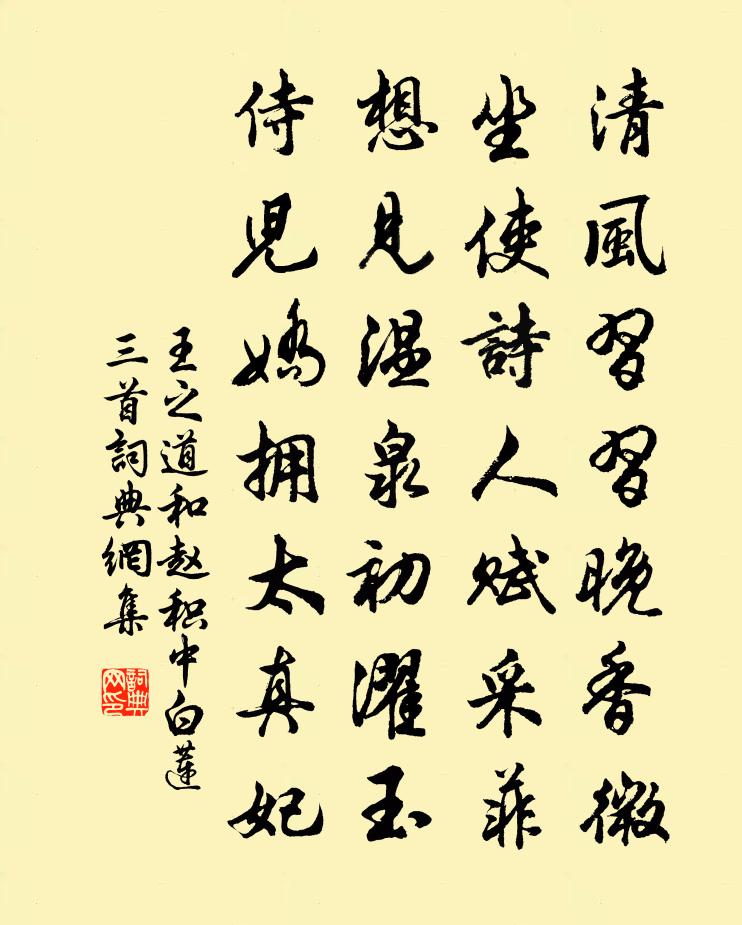 清風習習晚香微
坐使詩人賦采菲
想見温泉初濯玉
侍兒嬌拥太真妃
王之道和赵积中白蓮
三首詞典網集
詞典網印